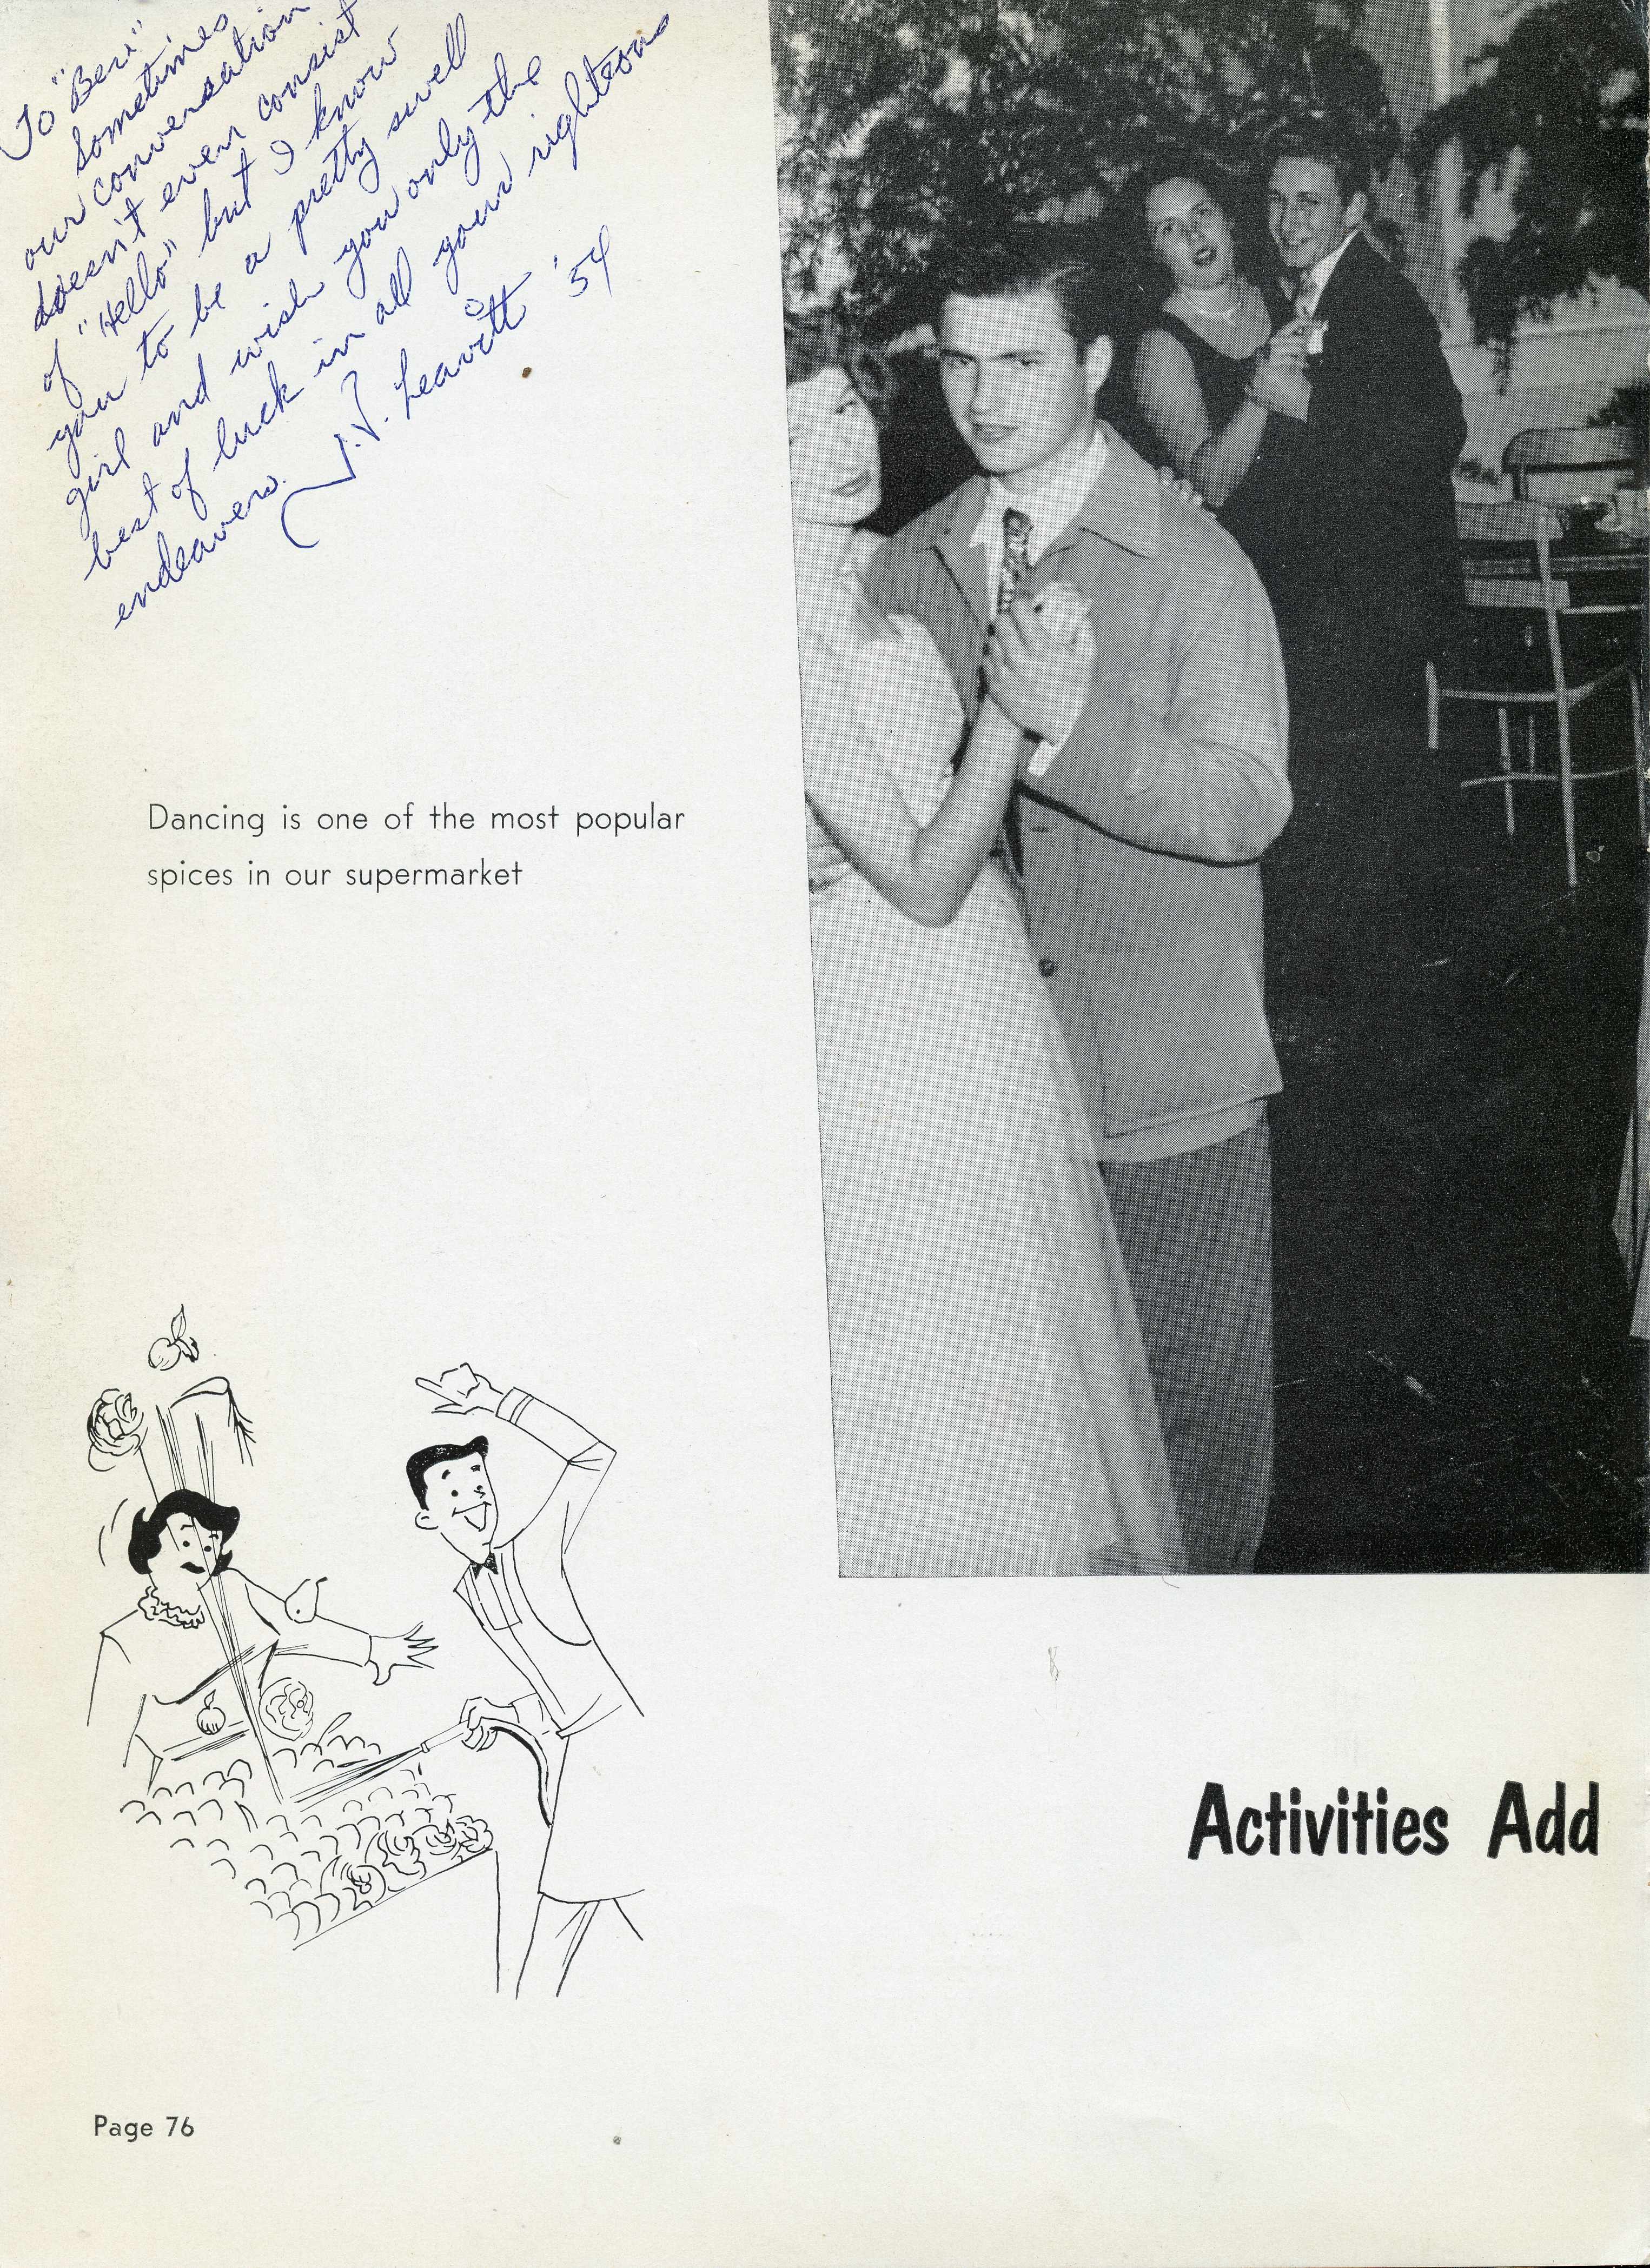 To "Bev"
Sometimes
our conversation
doesn't even consist
of "Hello" but I know
you to be a pretty swell
girl and wish you only the
best of luck in all your righteous
endeavers.
Leavitt '54
Dancing is one of the most popular
spices in our supermarket
Activities Add
Page 76